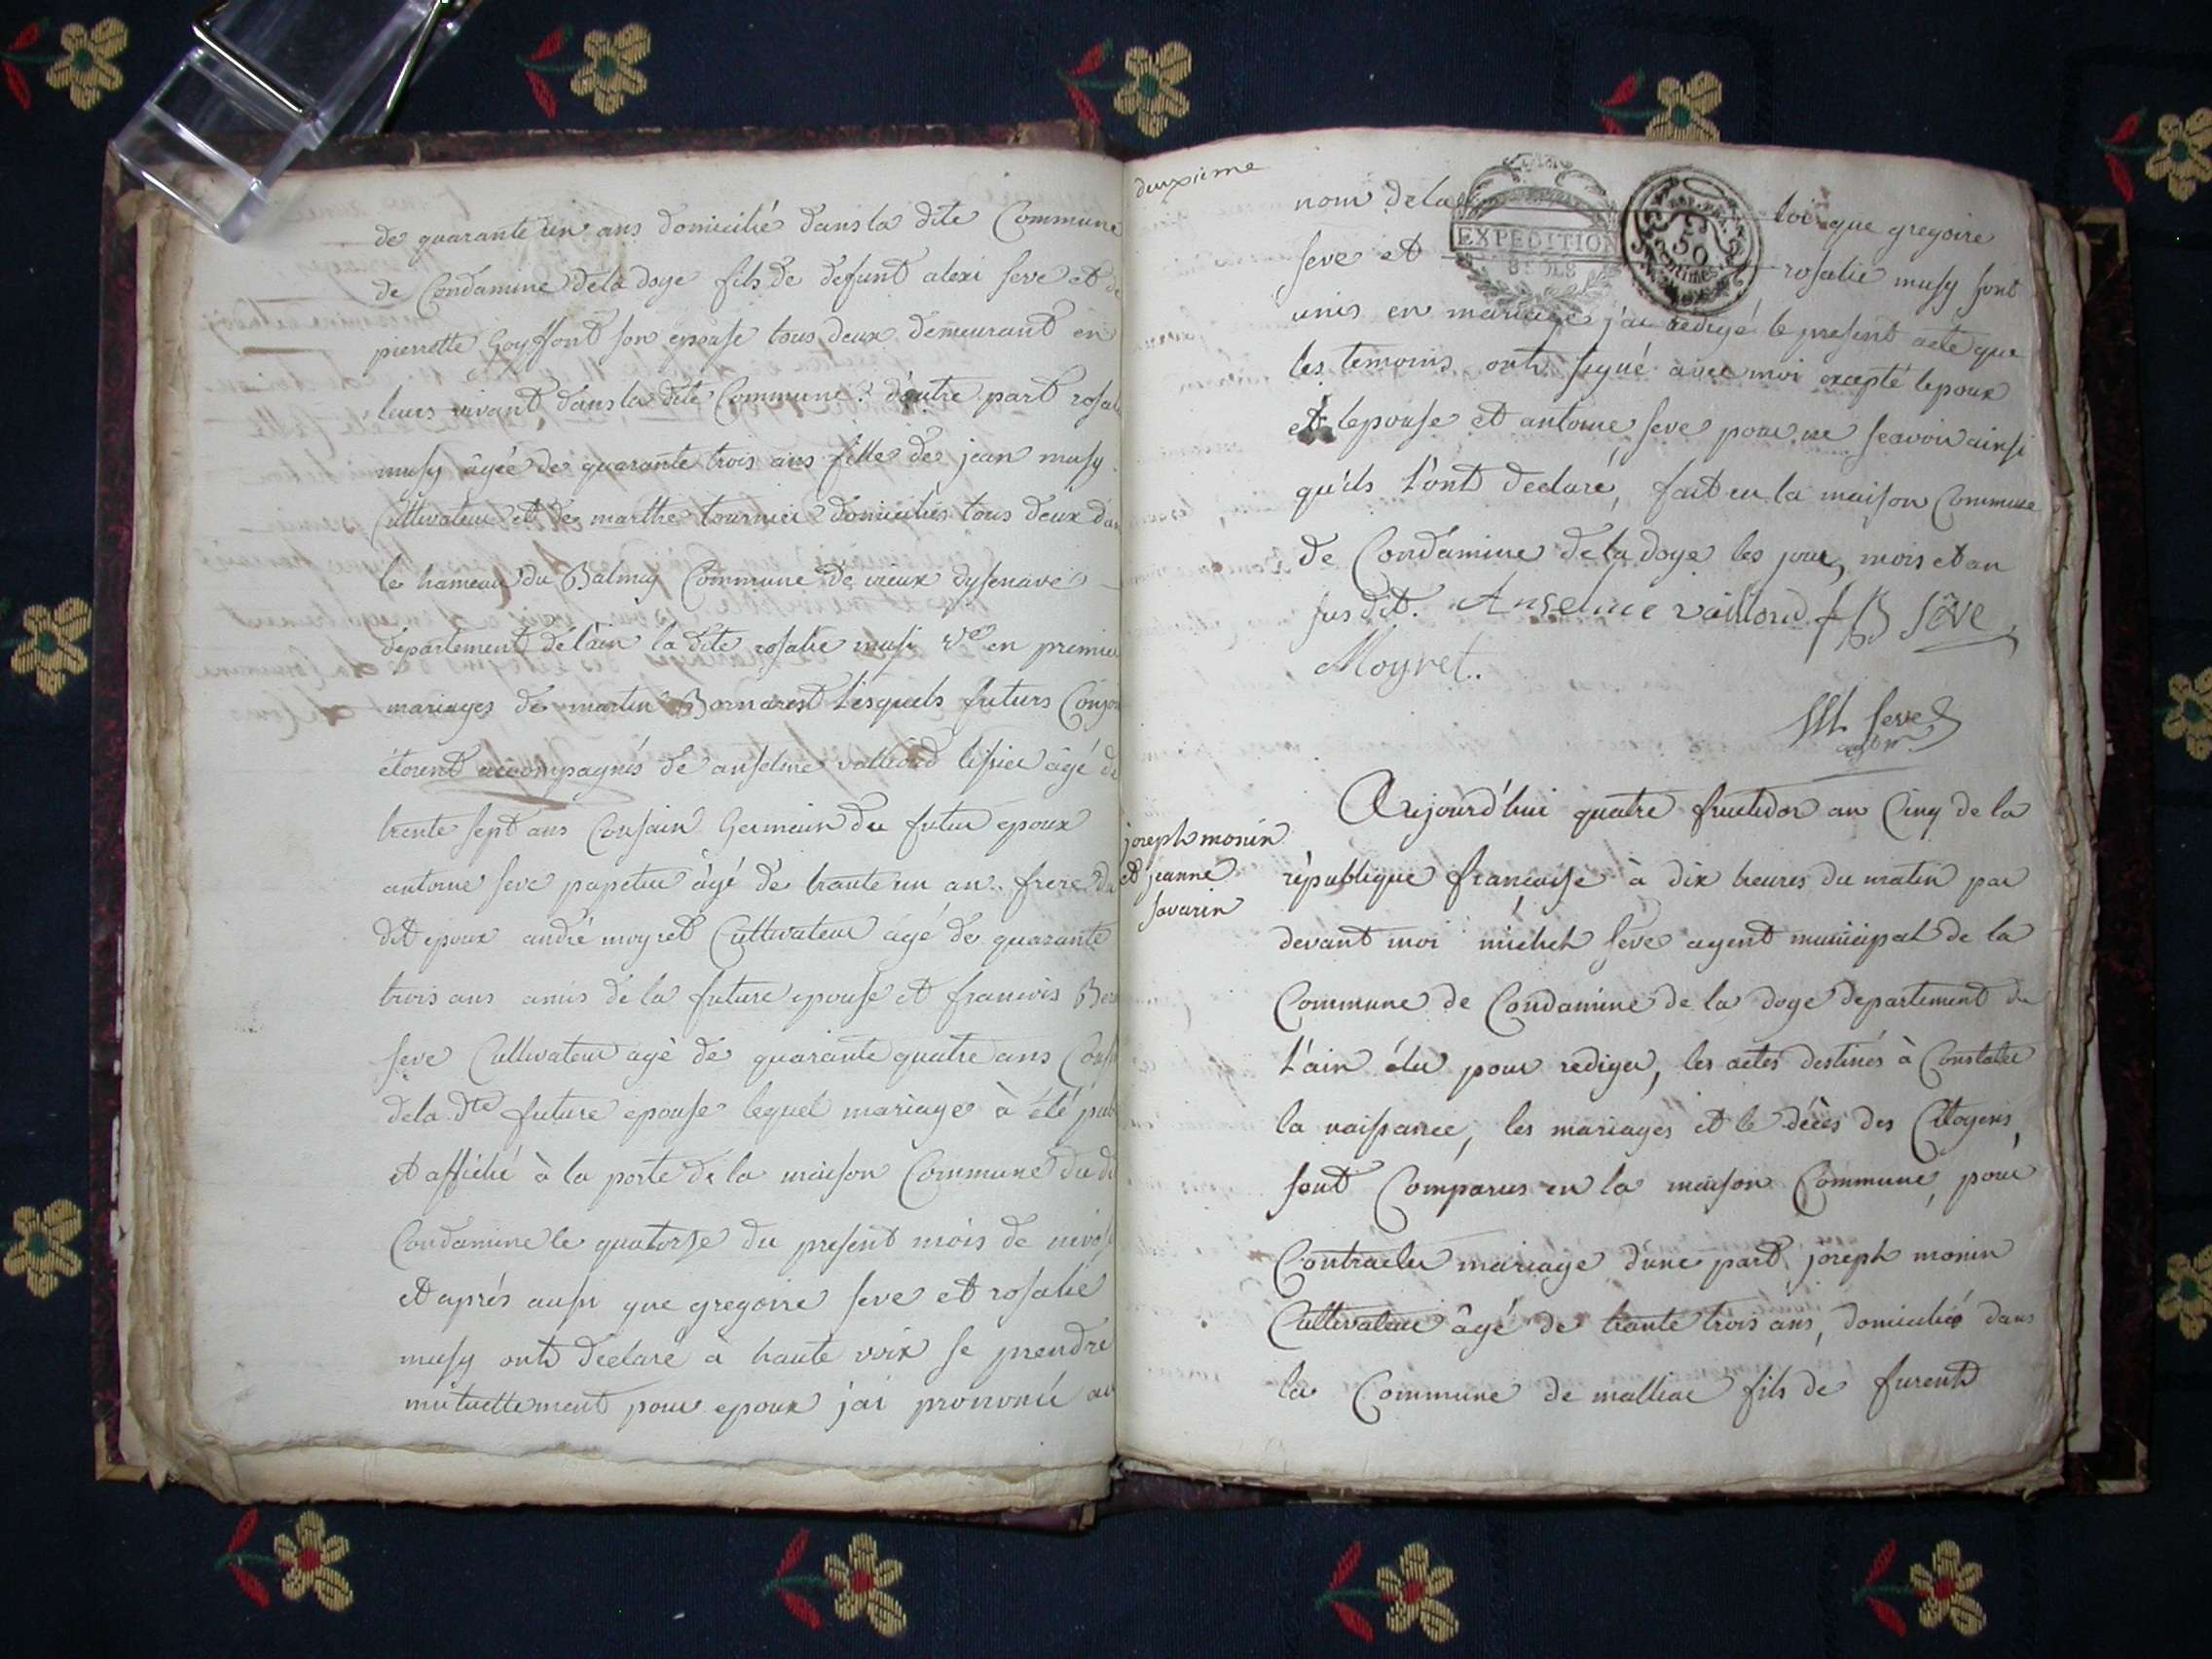 de quarante un ans domicilié dans la dite Commune
de Condamine dela doye fils de defunt alexi seve et de
pierrette Goyffont son epouse tous deux demeurant en
leurs vivant dans la dite Commune : d'autre part rosali
musy âgée de quarante trois ans fille de jean musy
Cultivateur et de marthe tournier domiciliés tous deux dan
le hameau du Balmay Commune de vieux dysenave
département de l'ain la dite rosalie musi ve en premier
mariages de martin Bornarest lesquels futurs Conjoi
étoient accompagnés de anselme valliord age de
trente sept ans Cousain Germain du futur epoux
antoine seve papetier âgé de trante un an frere du
dit epoux andré moyret Cultivateur âgé de quarante
trois ans amis de la future epouse et francois Ber
seve Cultivateur agé de quarante quatre ans Cous
dela dte future epouse lequel mariage à été pub
et affiché à la porte de la maison Commune du di
Condamine le quatorse du present mois de nivos
et aprés aussi que gregoire seve et rosalie
musy onts declare a haute voix se prendre
mutuellement pour epoux j'ai prononcé au
deuxième
nom dela loi que gregoire
EXPEDITION
8 SOLS
50
centimes
seve et rosalie musy sont
unis en mariage j'ai redigé le present acte que
les temoins onts signé avec moi excepté lepoux
et lepouse et antoine seve pour ne scavoir ainsi
qu'ils l'ont declaré, fait en la maison Commune
de Condamine dela doye les jour, mois et an
sus dit. Anselme vailliord f B Séve
Moyret.
M seve
agent
joseph monin
et jeanne
savarin
Aujourd'hui quatre fructidor an Cinq de la
république française à dix heures du matin par
devant moi michel seve agent municipal de la
Commune de Condamine de la doye departement de
l'ain élu pour rediger, les actes destinés à Constater
la naissance, les mariages et le décès des Citoyens,
sont Comparus en la maison Commune, pour
Contracter mariage d'une part joseph monin
Cultivateur âgé de trante trois ans, domicilié dans
la Commune de malliac fils de furents